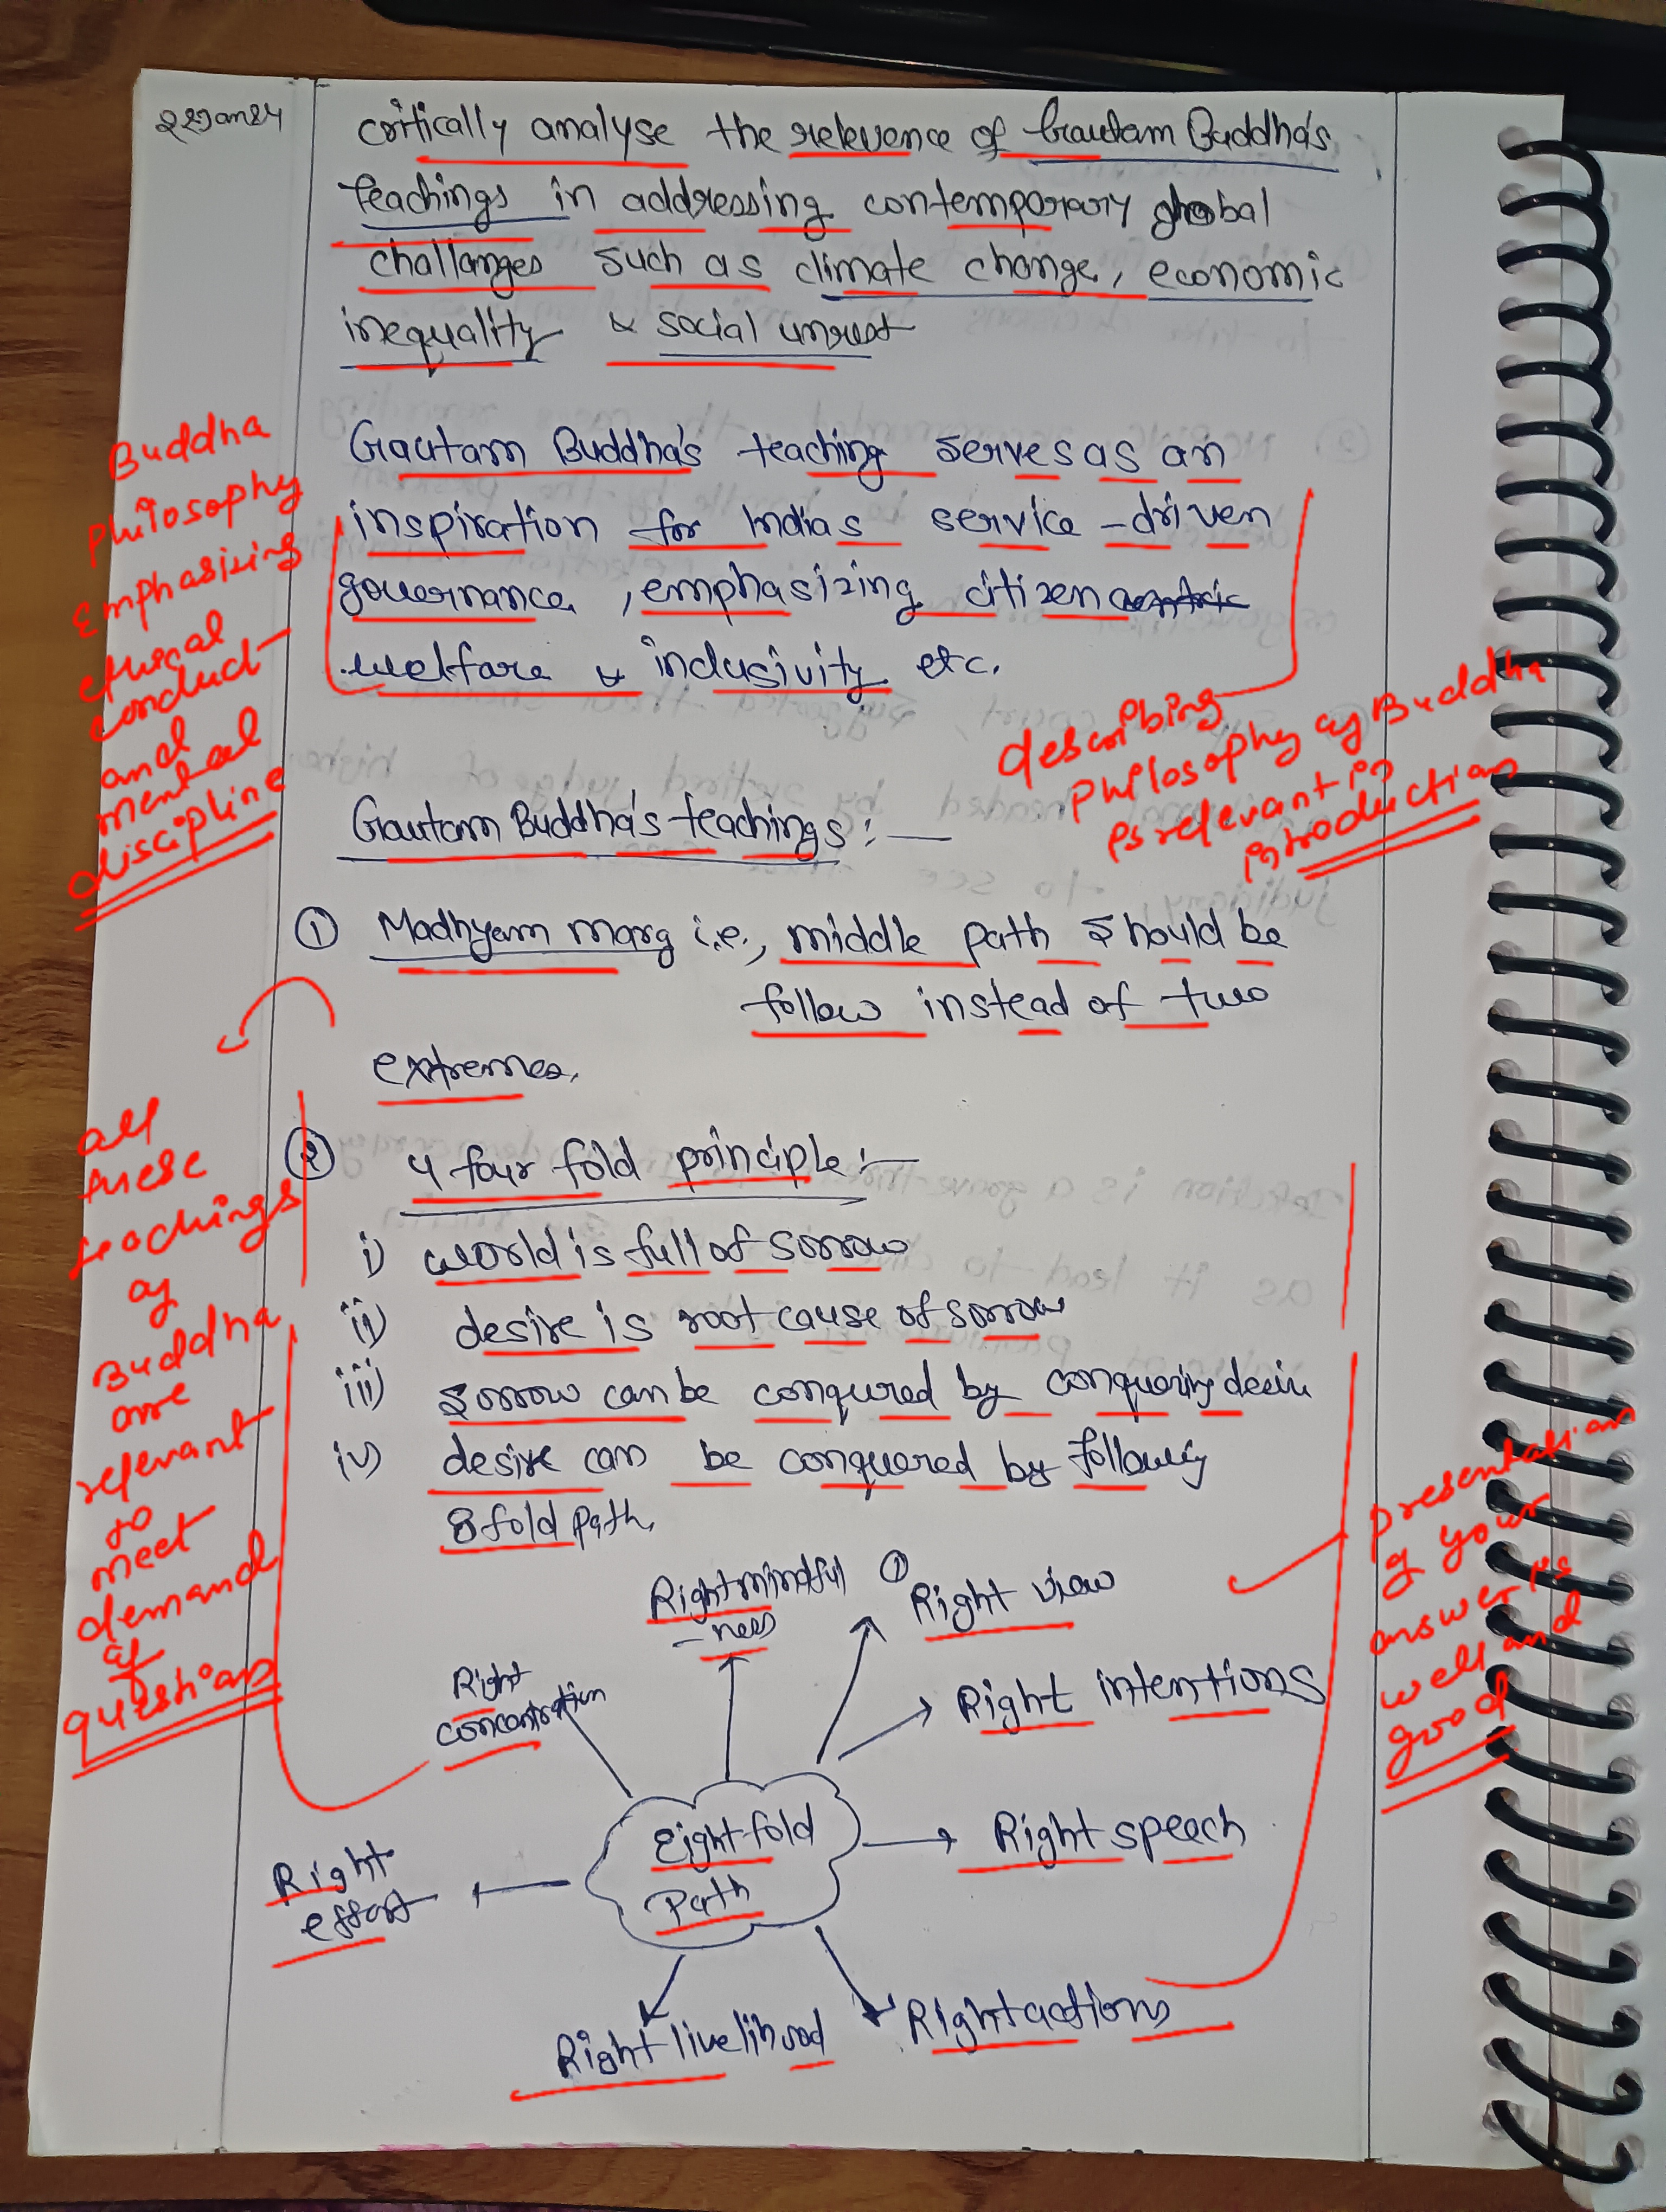 22Jan24
critically analyse the relevence of Gautam Buddha's
teachings in addressing contemporary global
challanges such as climate change, economic
inequality & social unrest
Gautam Buddha's teaching serves as an
inspiration for Indias service-driven
governance, emphasizing citizen centric
welfare & inclusivity etc.
Buddha
philosophy
Emphasizing
ethical
conduct
and
mental
discipline
describing
philosophy of Buddha
is relevant in
introduction
Gautam Buddha's teachings:—
① Madhyam marg i.e., middle path should be
follow instead of two
extremes.
② 4 four fold principle:—
i) world is full of sorrow
ii) desire is root cause of sorrow
iii) sorrow can be conqured by conquering desire
iv) desire can be conquered by following
8 fold path.
all
these
teachings
of
Buddha
are
relevant
to
meet
demand
of
question
Right mindful
-ness
① Right view
Right intentions
Right speech
Right actions
Right livelihood
Right
effort
Right
concentration
Eight fold
Path
presentation
of your
answer is
well and
good